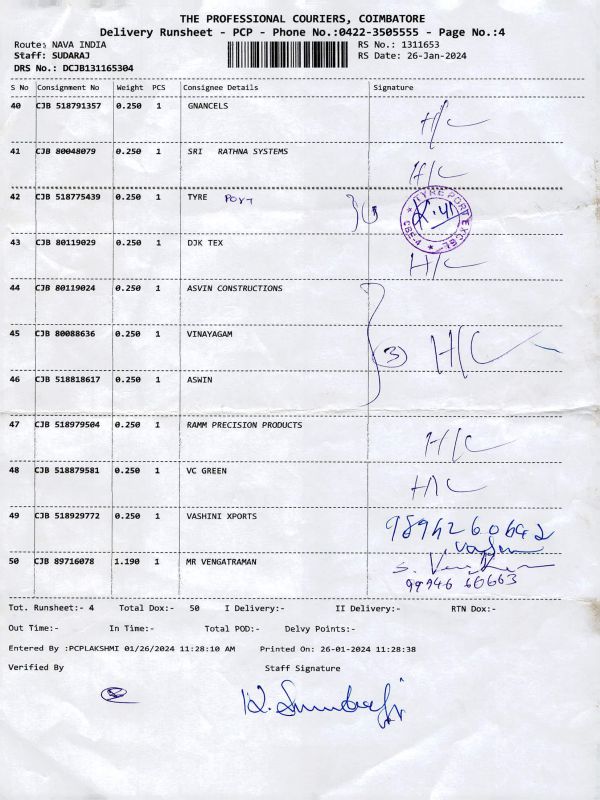 THE PROFESSIONAL COURIERS, COIMBATORE
Delivery Runsheet - PCP - Phone No.:0422-3505555 - Page No.:4
Route: NAVA INDIA RS No.: 1311653
Staff: SUDARAJ RS Date: 26-Jan-2024
DRS No.: DCJB131165304
S No Consignment No Weight PCS Consignee Details Signature
40 CJB 518791357 0.250 1 GNANCELS H/C
41 CJB 80048079 0.250 1 SRI RATHNA SYSTEMS H/C
42 CJB 518775439 0.250 1 TYRE PORT
43 CJB 80119029 0.250 1 DJK TEX H/C
44 CJB 80119024 0.250 1 ASVIN CONSTRUCTIONS
45 CJB 80088636 0.250 1 VINAYAGAM (3) H/C
46 CJB 518818617 0.250 1 ASWIN
47 CJB 518979504 0.250 1 RAMM PRECISION PRODUCTS H/C
48 CJB 518879581 0.250 1 VC GREEN H/C
49 CJB 518929772 0.250 1 VASHINI XPORTS
50 CJB 89716078 1.190 1 MR VENGATRAMAN
99946 66663
Tot. Runsheet:- 4 Total Dox:- 50 I Delivery:- II Delivery:- RTN Dox:-
Out Time:- In Time:- Total POD:- Delvy Points:-
Entered By :PCPLAKSHMI 01/26/2024 11:28:10 AM Printed On: 26-01-2024 11:28:38
Verified By Staff Signature